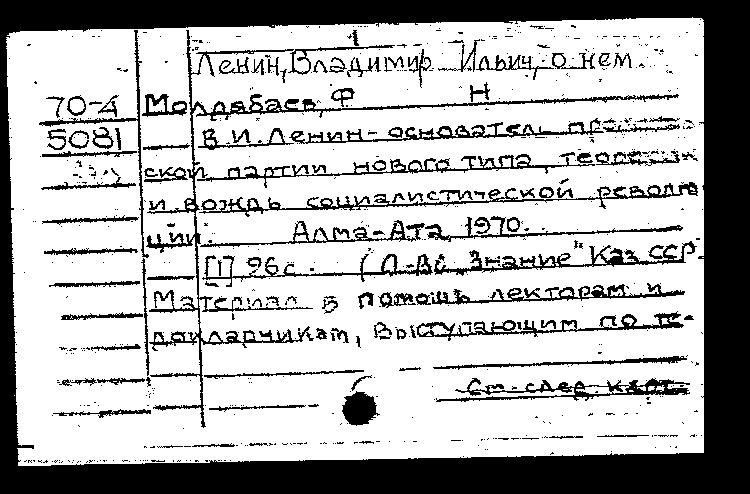 1
Ленин, Владимир Ильич, о нем.
70-4 Молдабаев, Ф Н
5081 В.И.Ленин - основатель
ской партии нового типа, теоретик
и вождь социалистической револю
ции. Алма-Ата, 1970.
[1] 96с. (О-во „Знание" Каз ССР.
Материал в помощь лекторам и
докладчикам, выступающим по те-
См. след. карт.